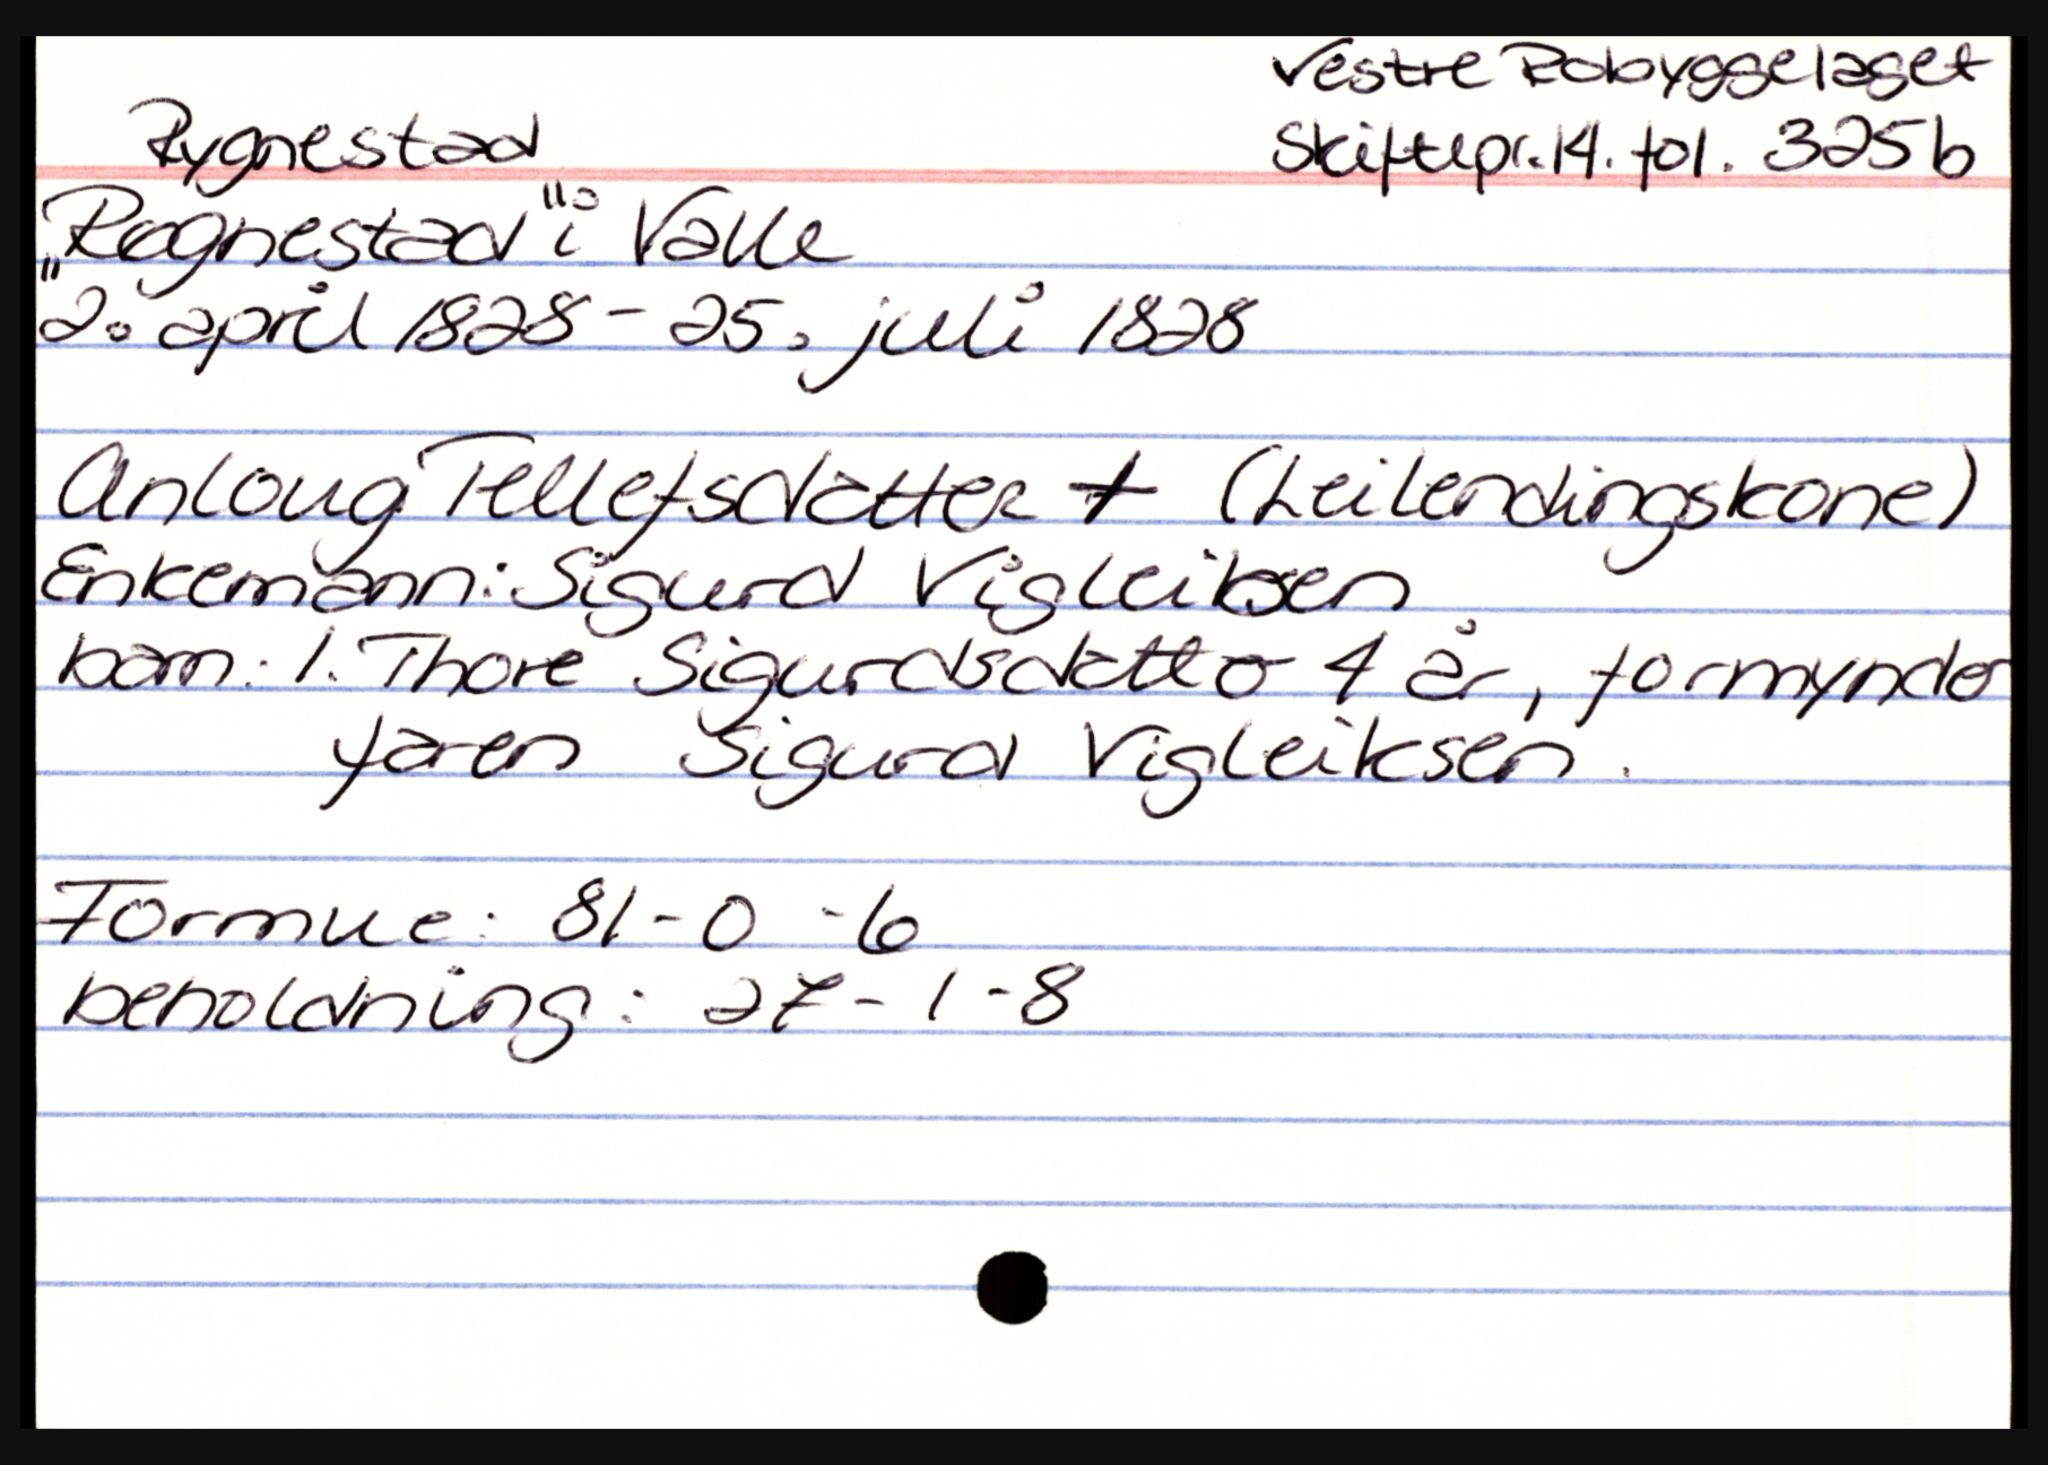 Vestre Robyggelaget
Rygnestad Skiftepr. 14. fol. 325 b
„Rognestad" i Valle
2. april 1828 - 25. juli 1828
Anloug Tellefsdatter + (Leilendingskone)
Enkemann: Sigurd Vigleiksen
barn: 1. Thore Sigurdsdatter 4 år, formynder
faren Sigurd Vigleiksen.
Formue: 81-0-6
beholdning: 27-1-8